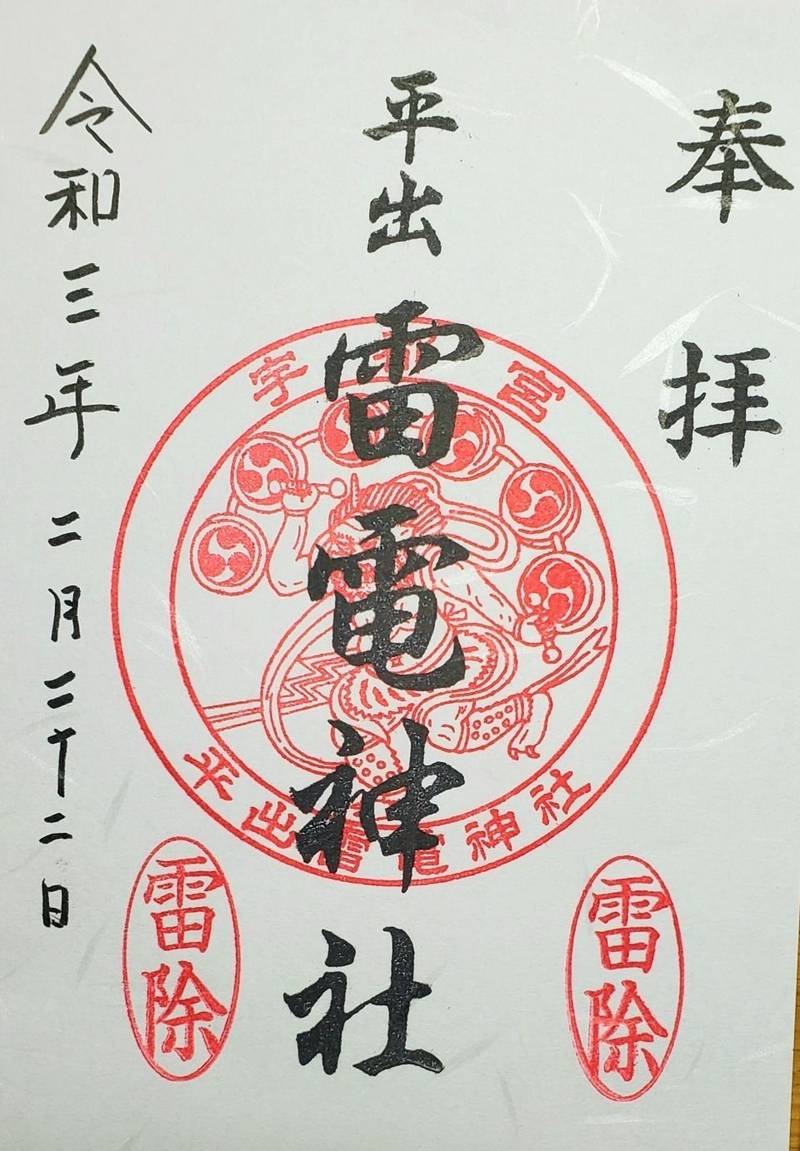 奉拝
平出
雷電神社
令和三年二月二十二日
宇 宮
平出雷電神社
雷除
雷除